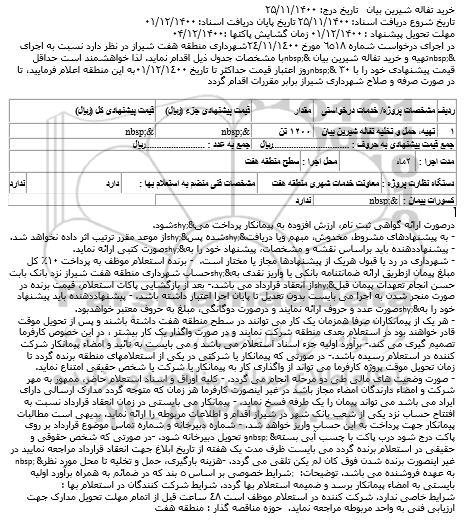 خرید تفاله شیرین بیان   تاریخ درج: ۲۵/۱۱/۱۴۰۰
تاریخ شروع دریافت اسناد: ۲۵/۱۱/۱۴۰۰ تاریخ پایان دریافت اسناد: ۰۱/۱۲/۱۴۰۰
مهلت تحویل پیشنهاد : ۰۱/۱۲/۱۴۰۰ زمان گشایش پاکتها :۰۴/۱۲/۱۴۰۰
در اجرای درخواست شماره ٦٥١٨ مورخ ٢٤/١١/١٤٠٠شهرداری منطقه هفت شیراز در نظر دارد نسبت به اجرای
&nbsp;تهیه و خرید تفاله شیرین بیان &nbsp;با مشخصات جدول ذیل اقدام نماید. لذا خواهشمند است حداقل
قیمت پیشنهادی خود را با ٣٠ &nbsp;روز اعتبار قیمت حداکثر تا تاریخ ٠١/١٢/١٤٠٠به این منطقه اعلام فرمایید، تا
در صورت صرفه و صلاح شهرداری شیراز برابر مقررات اقدام گردد
ردیف مشخصات پروژه/ خدمات درخواستی   مقدار   قیمت پیشنهادی جزء (ریال)   قیمت پیشنهادی کل (ریال)
۱   تهیه، حمل و تخلیه تفاله شیرین بیان   ۱۴۰۰ تن   &nbsp;   &nbsp;
جمع قیمت پیشنهادی به حروف : ............................ریال   جمع به عدد : ............................ریال
مدت اجرا :   ۲ماه   محل اجرا : سطح منطقه هفت
دستگاه نظارت پروژه : معاونت خدمات شهری منطقه هفت   مشخصات فنی منضم به استعلام بها :   دارد   ندارد
کسورات پیمان :   &nbsp;   ندارد
درصورت ارائه گواهی ثبت نام، ارزش افزوده به پیمانکار پرداخت می&shy;شود.
- به پیشنهادهای مشروط، مخدوش، مبهم ویا دریافت&shy;شده پس&shy;از موعد مقرر ترتیب اثر داده نخواهد شد.
- پیشنهاددهنده باید براساس نقشه و مشخصات، پیشنهاد خود را به&shy;صورت کتبی ارائه نماید.
- شهرداری در رد یا قبول هریک از پیشنهادها مجاز یا مختار است.  - برنده استعلام موظف به پرداخت ١٠٪ کل
مبلغ پیمان ازطریق ارائه ضمانتنامه بانکی یا واریز نقدی به&shy;حساب شهرداری منطقه هفت شیراز نزد بانک بابت
حسن انجام تعهدات پیمان قبل&shy;از انعقاد قرارداد می باشد.- بعد از بازگشایی پاکات استعلام، قیمت برنده در
صورت منجر شدن به اجرا می بایست بدون تعدیل تا پایان اجرا اعتبار داشته باشد. - پیشنهاددهنده باید پیشنهاد
خود را به&shy;صورت عدد و حروف ارائه نمایند و درصورت دوگانگی، مبلغ به حروف معتبر خواهدبود.
- هر یک از پیمانکاران صرفا همزمان یک کار می توانند در سطح منطقه هفت داشته باشند و پس از تحویل موقت
قادر خواهند بود در استعلام بعدی منطقه شرکت نمایند و در صورت واگذاری یک کار بیشتر ، در این خصوص کارفرما
تصمیم گیری می کند.- برآورد اولیه جزء اسناد استعلام می باشد و می بایست به تأئید و امضاء پیمانکار شرکت
کننده در استعلام رسیده باشد.- در صورتی که پیمانکار یا شرکتی در یکی از استعلامهای منطقه برنده گردد تا
زمان تحویل موقت پروژه کارفرما می تواند از واگذاری کار به پیمانکار یا شرکت یا شخص حقیقی امتناع نماید.
- صورت وضعیت های مالی طی دو مرحله انجام می گردد. - کلیه اوراق و اسناد استعلام حاضر، ممهور به مهر
شرکت و امضاء دارندگان امضاء مجاز باشد در غیر اینصورت کارفرما هر زمان که متوجه گردد مدارک ارسالی دارای
ایراد می باشد می تواند پیمان را یک طرفه فسخ نماید. - پیمانکار می بایستی در زمان انعقاد قرارداد نسبت به
افتتاح حساب نزد یکی از شعب بانک شهر در شیراز اقدام و اطلاعات مربوطه را ارائه نماید. بدیهی است مطالبات
پیمانکار جهت پرداخت به این حساب واریز خواهد شد. - شماره دبیرخانه و شماره تماس موضوع قرارداد بر روی
پاکت درج شود درب پاکت با چسب آبی بسته&nbsp; و تحویل دبیرخانه شود. -در صورتی که شخص حقوقی و
حقیقی در استعلام برنده گردد می بایست ظرف مدت یک هفته از تاریخ ابلاغ جهت انعقاد قرارداد مراجعه نمایید در
غیر اینصورت برنده شدن فوق کان لم یکن تلقی می گردد. -هزینه بارگیری، حمل و تخلیه تا محل مورد نظر&nbsp;
به عهده فروشنده می باشد. توضیحات:  شرایط خصوصی بر اساس ٥ بند که در ضمائم به همراه برآورد اولیه
بایستی به امضاء پیمانکار برسد و ضمیمه استعلام بها گردد. شرایط شرکت کنندگان در استعلام بها :
شرایط خاصی ندارد، شرکت کننده در استعلام موظف است ٤٨ ساعت قبل از اتمام مهلت تحویل مدارک جهت
ارزیابی فنی به واحد مربوطه مراجعه نماید.  حوزه مناقصه گذار : منطقه هفت